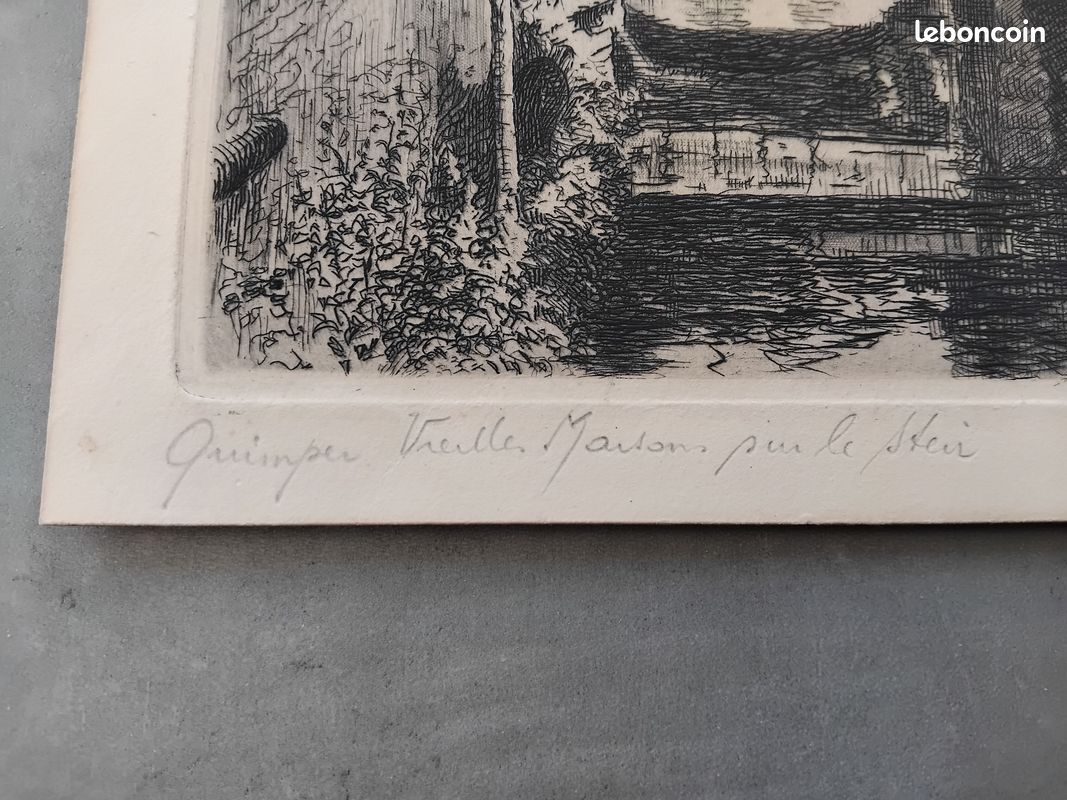 leboncoin
Quimper Vieilles Maisons sur le Steir